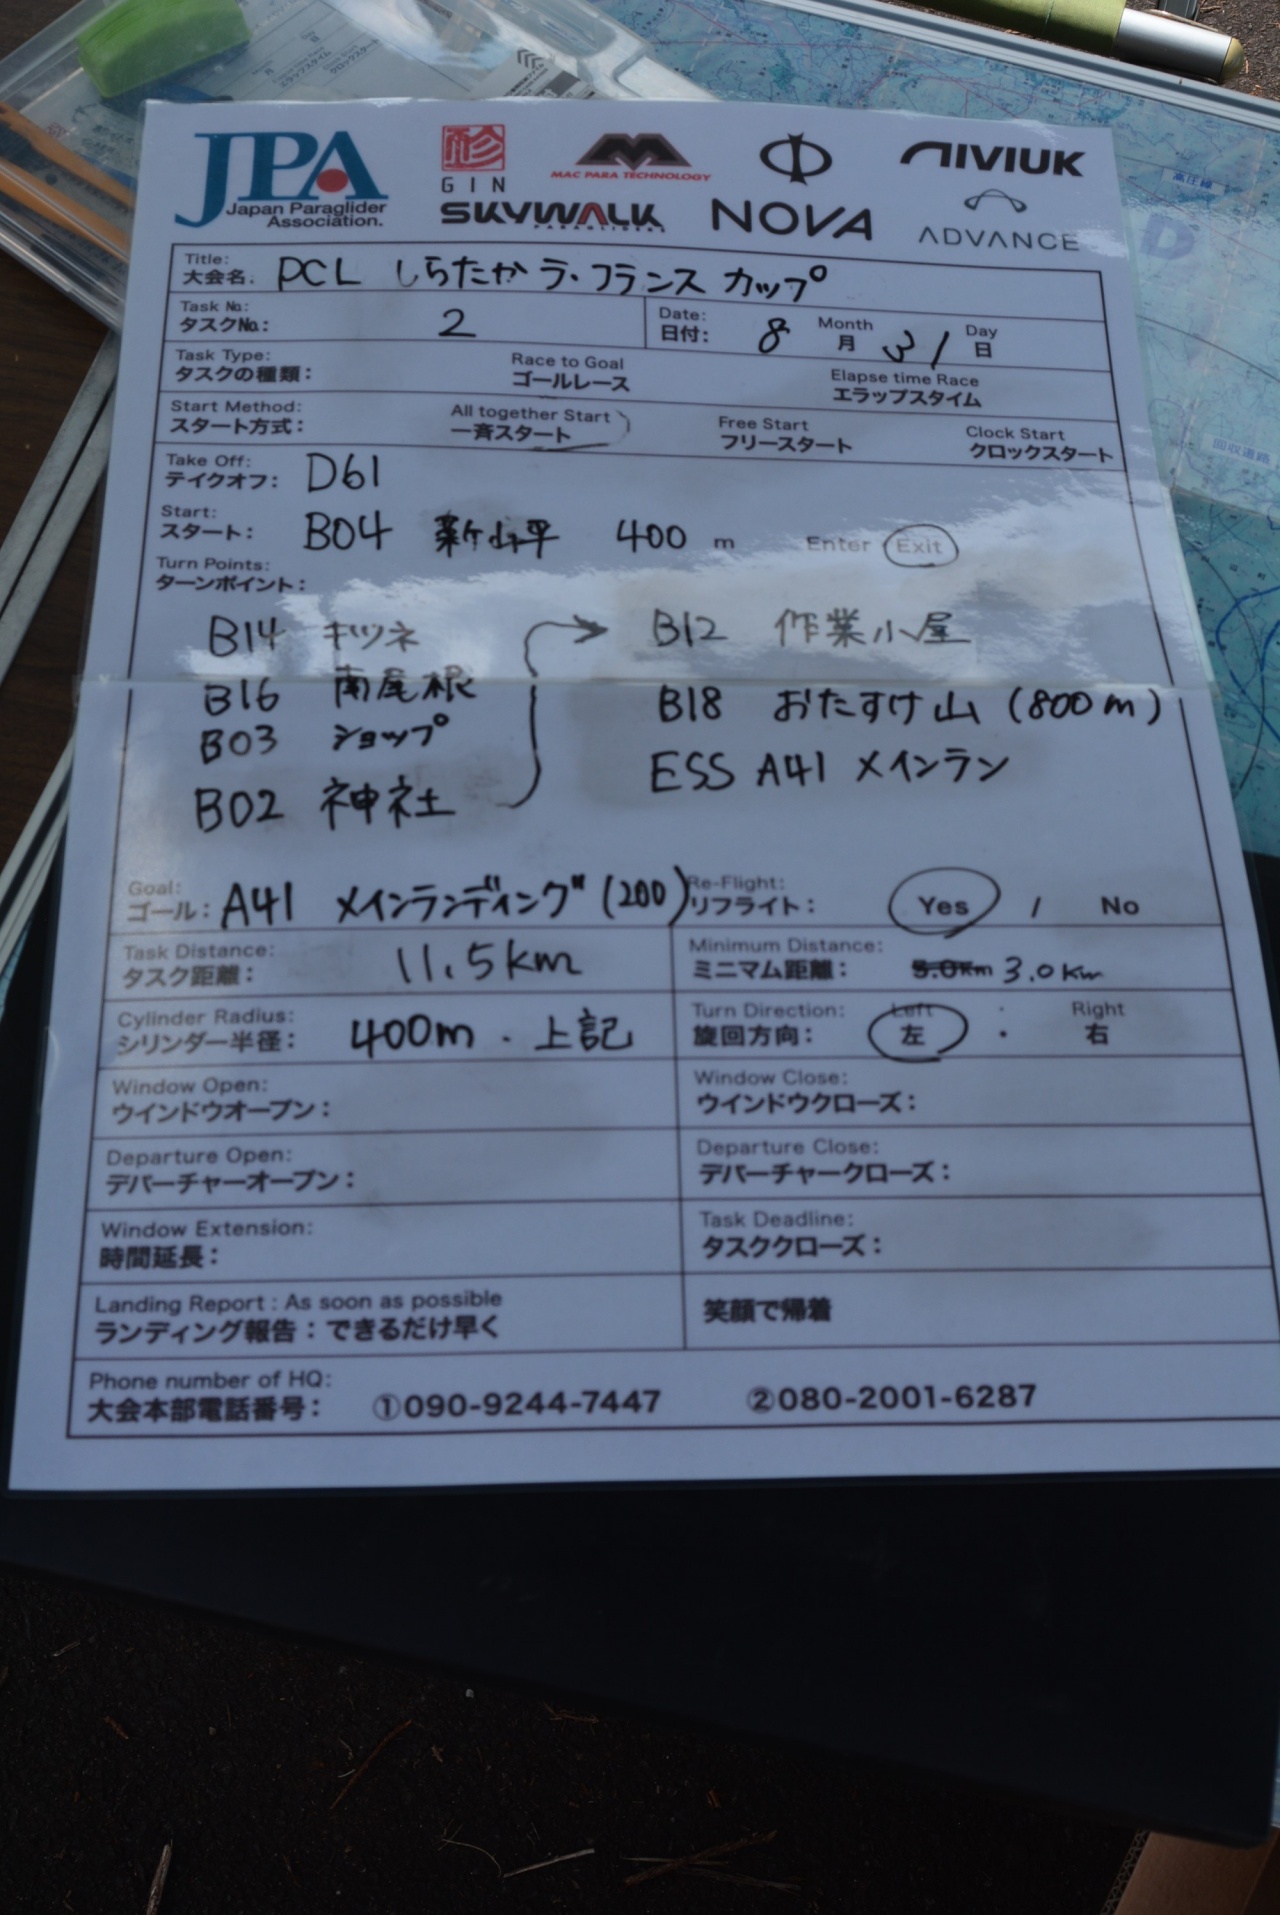 JPA
Japan Paraglider
Association.
GIN
MAC PARA TECHNOLOGY
NIVIUK
SKYWALK
PARAGLIDERS
NOVA
ADVANCE
Title:
大会名. PCL しらたか ラ・フランス カップ
Task No:
タスクNo: 2
Date:
日付: 8 Month 月 31 Day 日
Task Type:
タスクの種類:
Race to Goal
ゴールレース
Elapse time Race
エラップスタイム
Start Method:
スタート方式:
All together Start
一斉スタート
Free Start
フリースタート
Clock Start
クロックスタート
Take Off:
テイクオフ: D61
Start:
スタート: B04 400 m Enter Exit
Turn Points:
ターンポイント:
B14 キツネ
B16 南尾根
B03 ショップ
B02 神社
B12 作業小屋
B18 おたすけ山 (800m)
ESS A41 メインラン
Goal:
ゴール: A41 メインランディング (200)
Re-Flight:
リフライト: Yes / No
Task Distance:
タスク距離: 11.5km
Minimum Distance:
ミニマム距離: 5.0Km 3.0Km
Cylinder Radius:
シリンダー半径: 400m . 上記
Turn Direction: Left : Right
旋回方向: 左 ・ 右
Window Open:
ウインドウオープン:
Window Close:
ウインドウクローズ:
Departure Open:
デパーチャーオープン:
Departure Close:
デパーチャークローズ:
Window Extension:
時間延長:
Task Deadline:
タスククローズ:
Landing Report : As soon as possible
ランディング報告：できるだけ早く
笑顔で帰着
Phone number of HQ:
大会本部電話番号: ①090-9244-7447 ②080-2001-6287
D
高圧線
回収道路